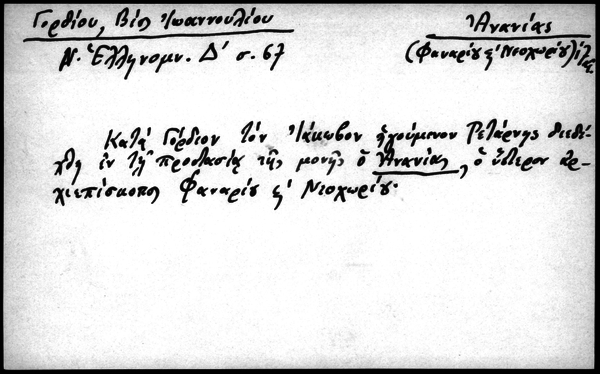 Γορδίου, Βίος Ἰωαννουλίου
Ν. Ἑλληνομν. Δ' σ. 67
Ἀνανίας
(Φαναρίου & Νεοχωρίου)
Κατὰ Γόρδιον τὸν Ἰάκωβον ἡγούμενον Ρετάρνης διεδέ-
χθη ἐν τῇ προστασίᾳ τῆς μονῆς ὁ Ἀνανίας, ὁ ὕστερον ἀρ-
χιεπίσκοπος Φαναρίου & Νεοχωρίου.